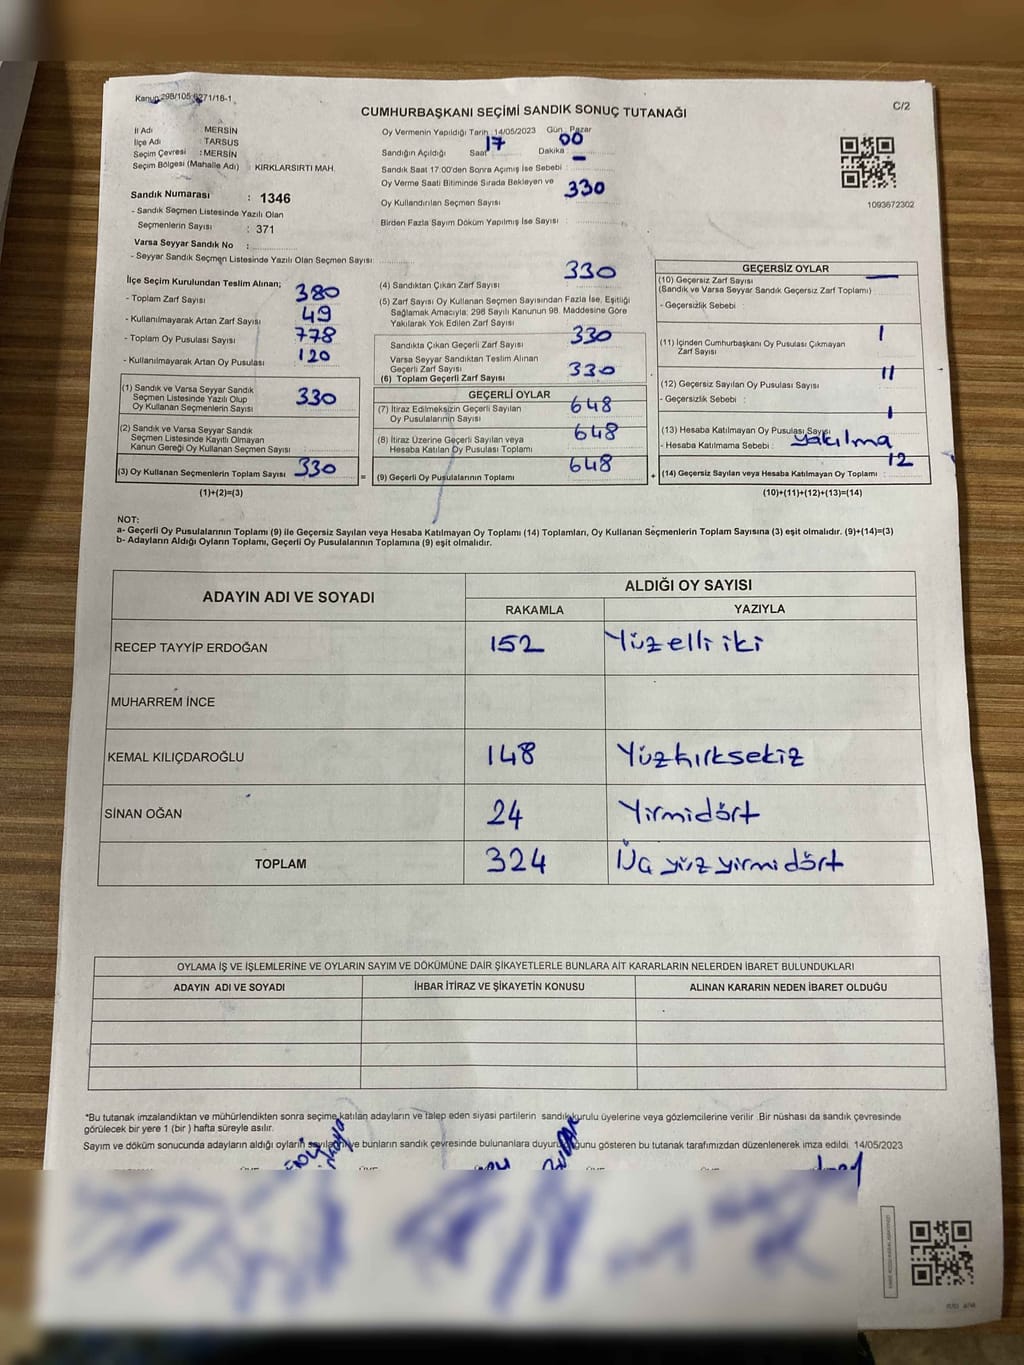 Kanun 298/105 6271/16-1
C/2
CUMHURBAŞKANI SEÇİMİ SANDIK SONUÇ TUTANAĞI
İl Adı MERSİN
İlçe Adı : TARSUS
Seçim Çevresi : MERSİN
Seçim Bölgesi (Mahalle Adı) : KIRKLARSIRTI MAH.
Sandık Numarası : 1346
- Sandık Seçmen Listesinde Yazılı Olan
Seçmenlerin Sayısı : 371
Varsa Seyyar Sandık No :
- Seyyar Sandık Seçmen Listesinde Yazılı Olan Seçmen Sayısı:
Oy Vermenin Yapıldığı Tarih :14/05/2023 Gün : Pazar
Sandığın Açıldığı Saat 17 Dakika 00
Sandık Saat 17:00'den Sonra Açımış İse Sebebi : –
Oy Verme Saati Bitiminde Sırada Bekleyen ve
Oy Kullandırılan Seçmen Sayısı 330
Birden Fazla Sayım Döküm Yapılmış İse Sayısı :
1093672302
İlçe Seçim Kurulundan Teslim Alınan;
- Toplam Zarf Sayısı 380
- Kullanılmayarak Artan Zarf Sayısı 49
- Toplam Oy Pusulası Sayısı 778
- Kullanılmayarak Artan Oy Pusulası 120
(1) Sandık ve Varsa Seyyar Sandık
Seçmen Listesinde Yazılı Olup
Oy Kullanan Seçmenlerin Sayısı 330
(2) Sandık ve Varsa Seyyar Sandık
Seçmen Listesinde Kayıtlı Olmayan
Kanun Gereği Oy Kullanan Seçmen Sayısı
(3) Oy Kullanan Seçmenlerin Toplam Sayısı 330
(1)+(2)=(3)
(4) Sandıktan Çıkan Zarf Sayısı 330
(5) Zarf Sayısı Oy Kullanan Seçmen Sayısından Fazla İse, Eşitliği
Sağlamak Amacıyla; 298 Sayılı Kanunun 98. Maddesine Göre
Yakılarak Yok Edilen Zarf Sayısı
Sandıkta Çıkan Geçerli Zarf Sayısı 330
Varsa Seyyar Sandıktan Teslim Alınan
Geçerli Zarf Sayısı
(6) Toplam Geçerli Zarf Sayısı 330
=
GEÇERLİ OYLAR
(7) İtiraz Edilmeksizin Geçerli Sayılan
Oy Pusulalarının Sayısı 648
(8) İtiraz Üzerine Geçerli Sayılan veya
Hesaba Katılan Oy Pusulası Toplamı 648
(9) Geçerli Oy Pusulalarının Toplamı 648
+
GEÇERSİZ OYLAR
(10) Geçersiz Zarf Sayısı –
(Sandık ve Varsa Seyyar Sandık Geçersiz Zarf Toplamı)
- Geçersizlik Sebebi :
(11) İçinden Cumhurbaşkanı Oy Pusulası Çıkmayan
Zarf Sayısı 1
(12) Geçersiz Sayılan Oy Pusulası Sayısı 11
- Geçersizlik Sebebi :
(13) Hesaba Katılmayan Oy Pusulası Sayısı 1
- Hesaba Katılmama Sebebi : Yakılma
(14) Geçersiz Sayılan veya Hesaba Katılmayan Oy Toplamı : 12
(10)+(11)+(12)+(13)=(14)
NOT:
a- Geçerli Oy Pusulalarının Toplamı (9) ile Geçersiz Sayılan veya Hesaba Katılmayan Oy Toplamı (14) Toplamları, Oy Kullanan Seçmenlerin Toplam Sayısına (3) eşit olmalıdır. (9)+(14)=(3)
b- Adayların Aldığı Oyların Toplamı, Geçerli Oy Pusulalarının Toplamına (9) eşit olmalıdır.
ADAYIN ADI VE SOYADI ALDIĞI OY SAYISI
RAKAMLA YAZIYLA
RECEP TAYYİP ERDOĞAN 152 Yüzelli iki
MUHARREM İNCE
KEMAL KILIÇDAROĞLU 148 Yüzkırksekiz
SİNAN OĞAN 24 Yirmidört
TOPLAM 324 Üç yüz yirmidört
OYLAMA İŞ VE İŞLEMLERİNE VE OYLARIN SAYIM VE DÖKÜMÜNE DAİR ŞİKAYETLERLE BUNLARA AİT KARARLARIN NELERDEN İBARET BULUNDUKLARI
ADAYIN ADI VE SOYADI İHBAR İTİRAZ VE ŞİKAYETİN KONUSU ALINAN KARARIN NEDEN İBARET OLDUĞU
*Bu tutanak imzalandıktan ve mühürlendikten sonra seçime katılan adayların ve talep eden siyasi partilerin sandık kurulu üyelerine veya gözlemcilerine verilir. Bir nüshası da sandık çevresinde
görülecek bir yere 1 (bir ) hafta süreyle asılır.
Sayım ve döküm sonucunda adayların aldığı oyların sayıları ve bunların sandık çevresinde bulunanlara duyurulduğunu gösteren bu tutanak tarafımızdan düzenlenerek imza edildi. 14/05/2023